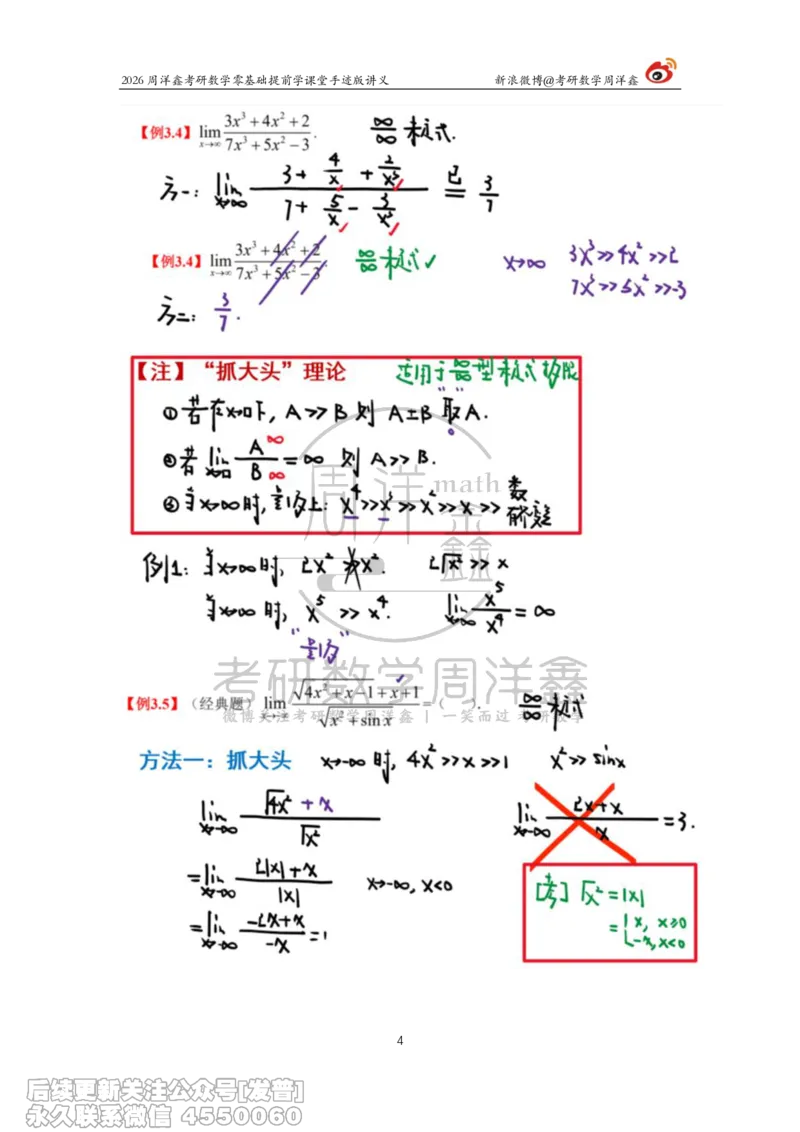 2026 周洋鑫考研数学零基础提前学课堂手迹版讲义 新浪微博@考研数学周洋鑫
【例3.4】 lim x→∞ (3x³+4x²+2)/(7x³+5x²−3). ∞/∞ 极式.
方一: lim x→∞ (3+4/x+2/x³)/(7+5/x−3/x³) = 3/7
【例3.4】 lim x→∞ (3x³+4x²+2)/(7x³+5x²−3) ∞/∞ 极式✓ x→∞ 3x³>>4x²>>2
7x³>>5x²>>-3
方二: 3/7.
【注】“抓大头”理论 适用于 ∞/∞ 型极式极限
①若在x→□下, A>>B 则 A±B “取”A.
②若 lim x→□ A/B = ∞ 则 A>>B. ∞ ∞
③当x→∞时, 量级上: x⁴>>x³>>x²>>x>>
例1: 当x→∞时, 2x² >> x². 2√x² >> x
当x→∞时, x⁵ >> x⁴. lim x→∞ x⁵/x⁴ = ∞
“量级”
周洋鑫 math
考研数学周洋鑫
【例3.5】（经典题） lim x→−∞ (√(4x²+x−1)+x+1)/√(x²+sin x) =（ ）. ∞/∞ 极式
微博关注考研数学周洋鑫 | 一笑而过 考研数学
方法一：抓大头 x→-∞ 时, 4x²>>x>>1 x²>>sinx
lim x→-∞ (√4x² + x)/√x² lim x→-∞ (2x+x)/x = 3.
= lim x→-∞ (2|x|+x)/|x| x→-∞, x<0 [考] √x² = |x|
= lim x→-∞ (-2x+x)/-x = 1 = { x, x≥0
-x, x<0
4
后续更新关注公众号[发普]
永久联系微信 4550060